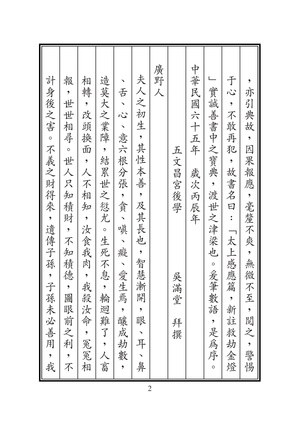 ，亦引典故，因果報應，毫釐不爽，無微不至，閱之，警惕
于心，不敢再犯，故書名曰：「太上感應篇，新註救劫金燈
」實誠善書中之寶典，渡世之津梁也。爰筆數語，是為序。
中華民國六十五年　歲次丙辰年
五文昌宮後學　　吳滿堂　拜撰
廣野人
夫人之初生，其性本善，及其長也，智慧漸開，眼、耳、鼻
、舌、心、意六根分張，貪、嗔、癡、愛生焉，釀成劫數，
造莫大之業障，結累世之愆尤。生死不息，輪迴難了，人畜
相轉，改頭換面，人不相知，汝食我肉，我殺汝命，冤冤相
報，世世相尋。世人只知積財，不知積德，圖眼前之利，不
計身後之害。不義之財得來，遺傳子孫，子孫未必善用，我
2